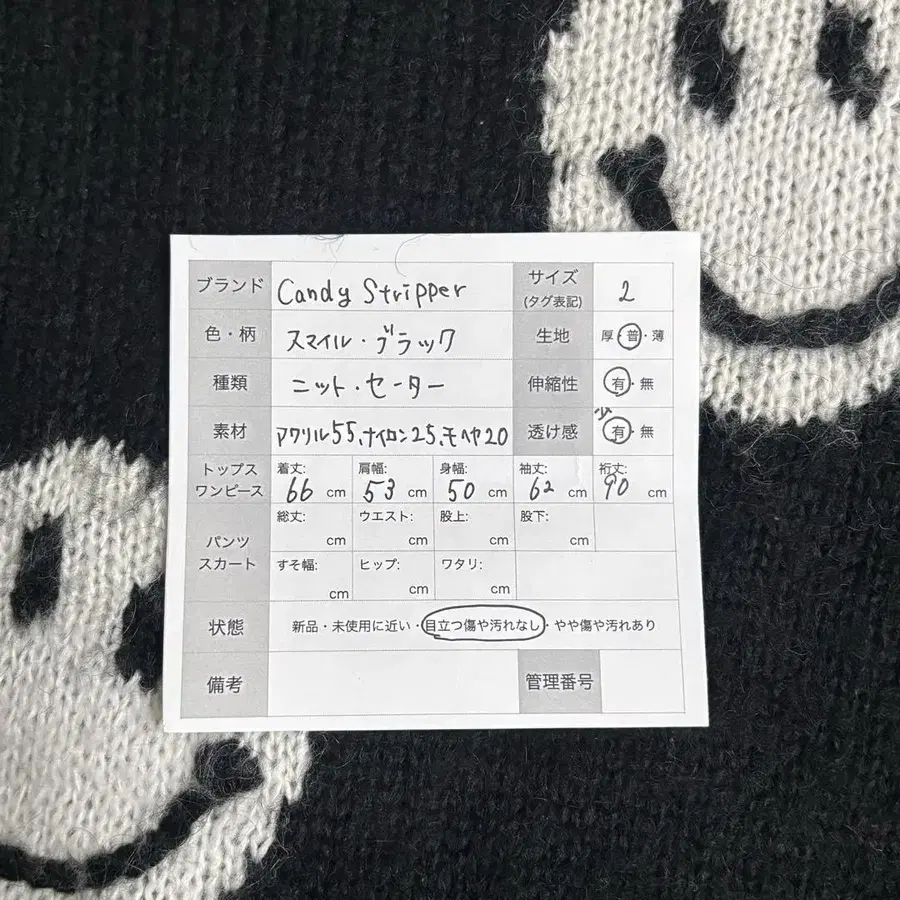 ブランド Candy Stripper サイズ (タグ表記) 2
色・柄 スマイル・ブラック 生地 厚・普・薄
種類 ニット・セーター 伸縮性 有・無
素材 アクリル55、ナイロン25、モヘヤ20 透け感 少 有・無
トップス ワンピース 着丈: 66 cm 肩幅: 53 cm 身幅: 50 cm 袖丈: 62 cm 裄丈: 90 cm
パンツ スカート 総丈: cm ウエスト: cm 股上: cm 股下: cm
すそ幅: cm ヒップ: cm ワタリ: cm
状態 新品・未使用に近い・目立つ傷や汚れなし・やや傷や汚れあり
備考 管理番号